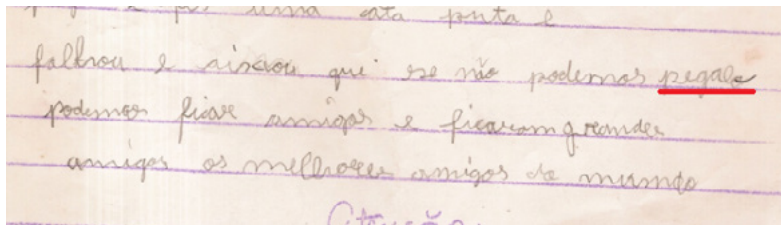 uma ata
falhou e avisou que se não podemos pegala
podemos ficar amigos e ficaram grandes
amigos os melhores amigos do mumdo